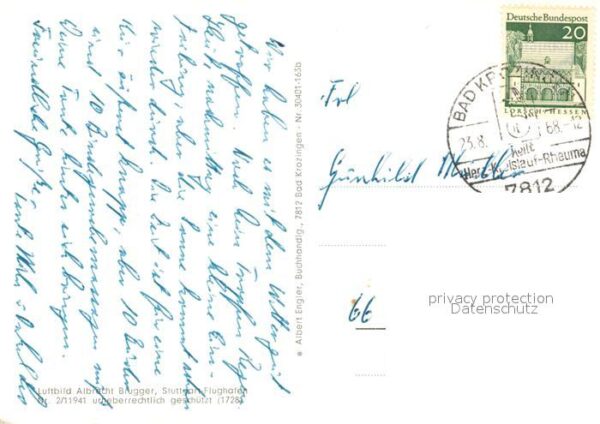 Wir haben es mit dem Wetter gut
getroffen. Noch kein Tropfen Regen.
Heute nachmittag eine kleine Ein-
trübung, aber die Sonne kommt schon
wieder durch. Die Zeit ist für eine
Kur äußerst knapp, aber 10 Bäder
und 10 Bindegewebsmassagen muß
Deine Tante hinter sich bringen.
Freundliche Grüße
Tante u. Onkel
Albert Engler, Buchhandlg., 7812 Bad Krozingen - Nr. 30401-165b
Luftbild Albrecht Brugger, Stuttgart-Flughafen
Nr. 2/11941 urheberrechtlich geschützt (1728)
Deutsche Bundespost
20
LORSCH · HESSEN
BAD KROZINGEN
23.8. 68.-12
heilt
Herz-Kreislauf-Rheuma
7812
Frl
Gunhild
66
privacy protection
Datenschutz